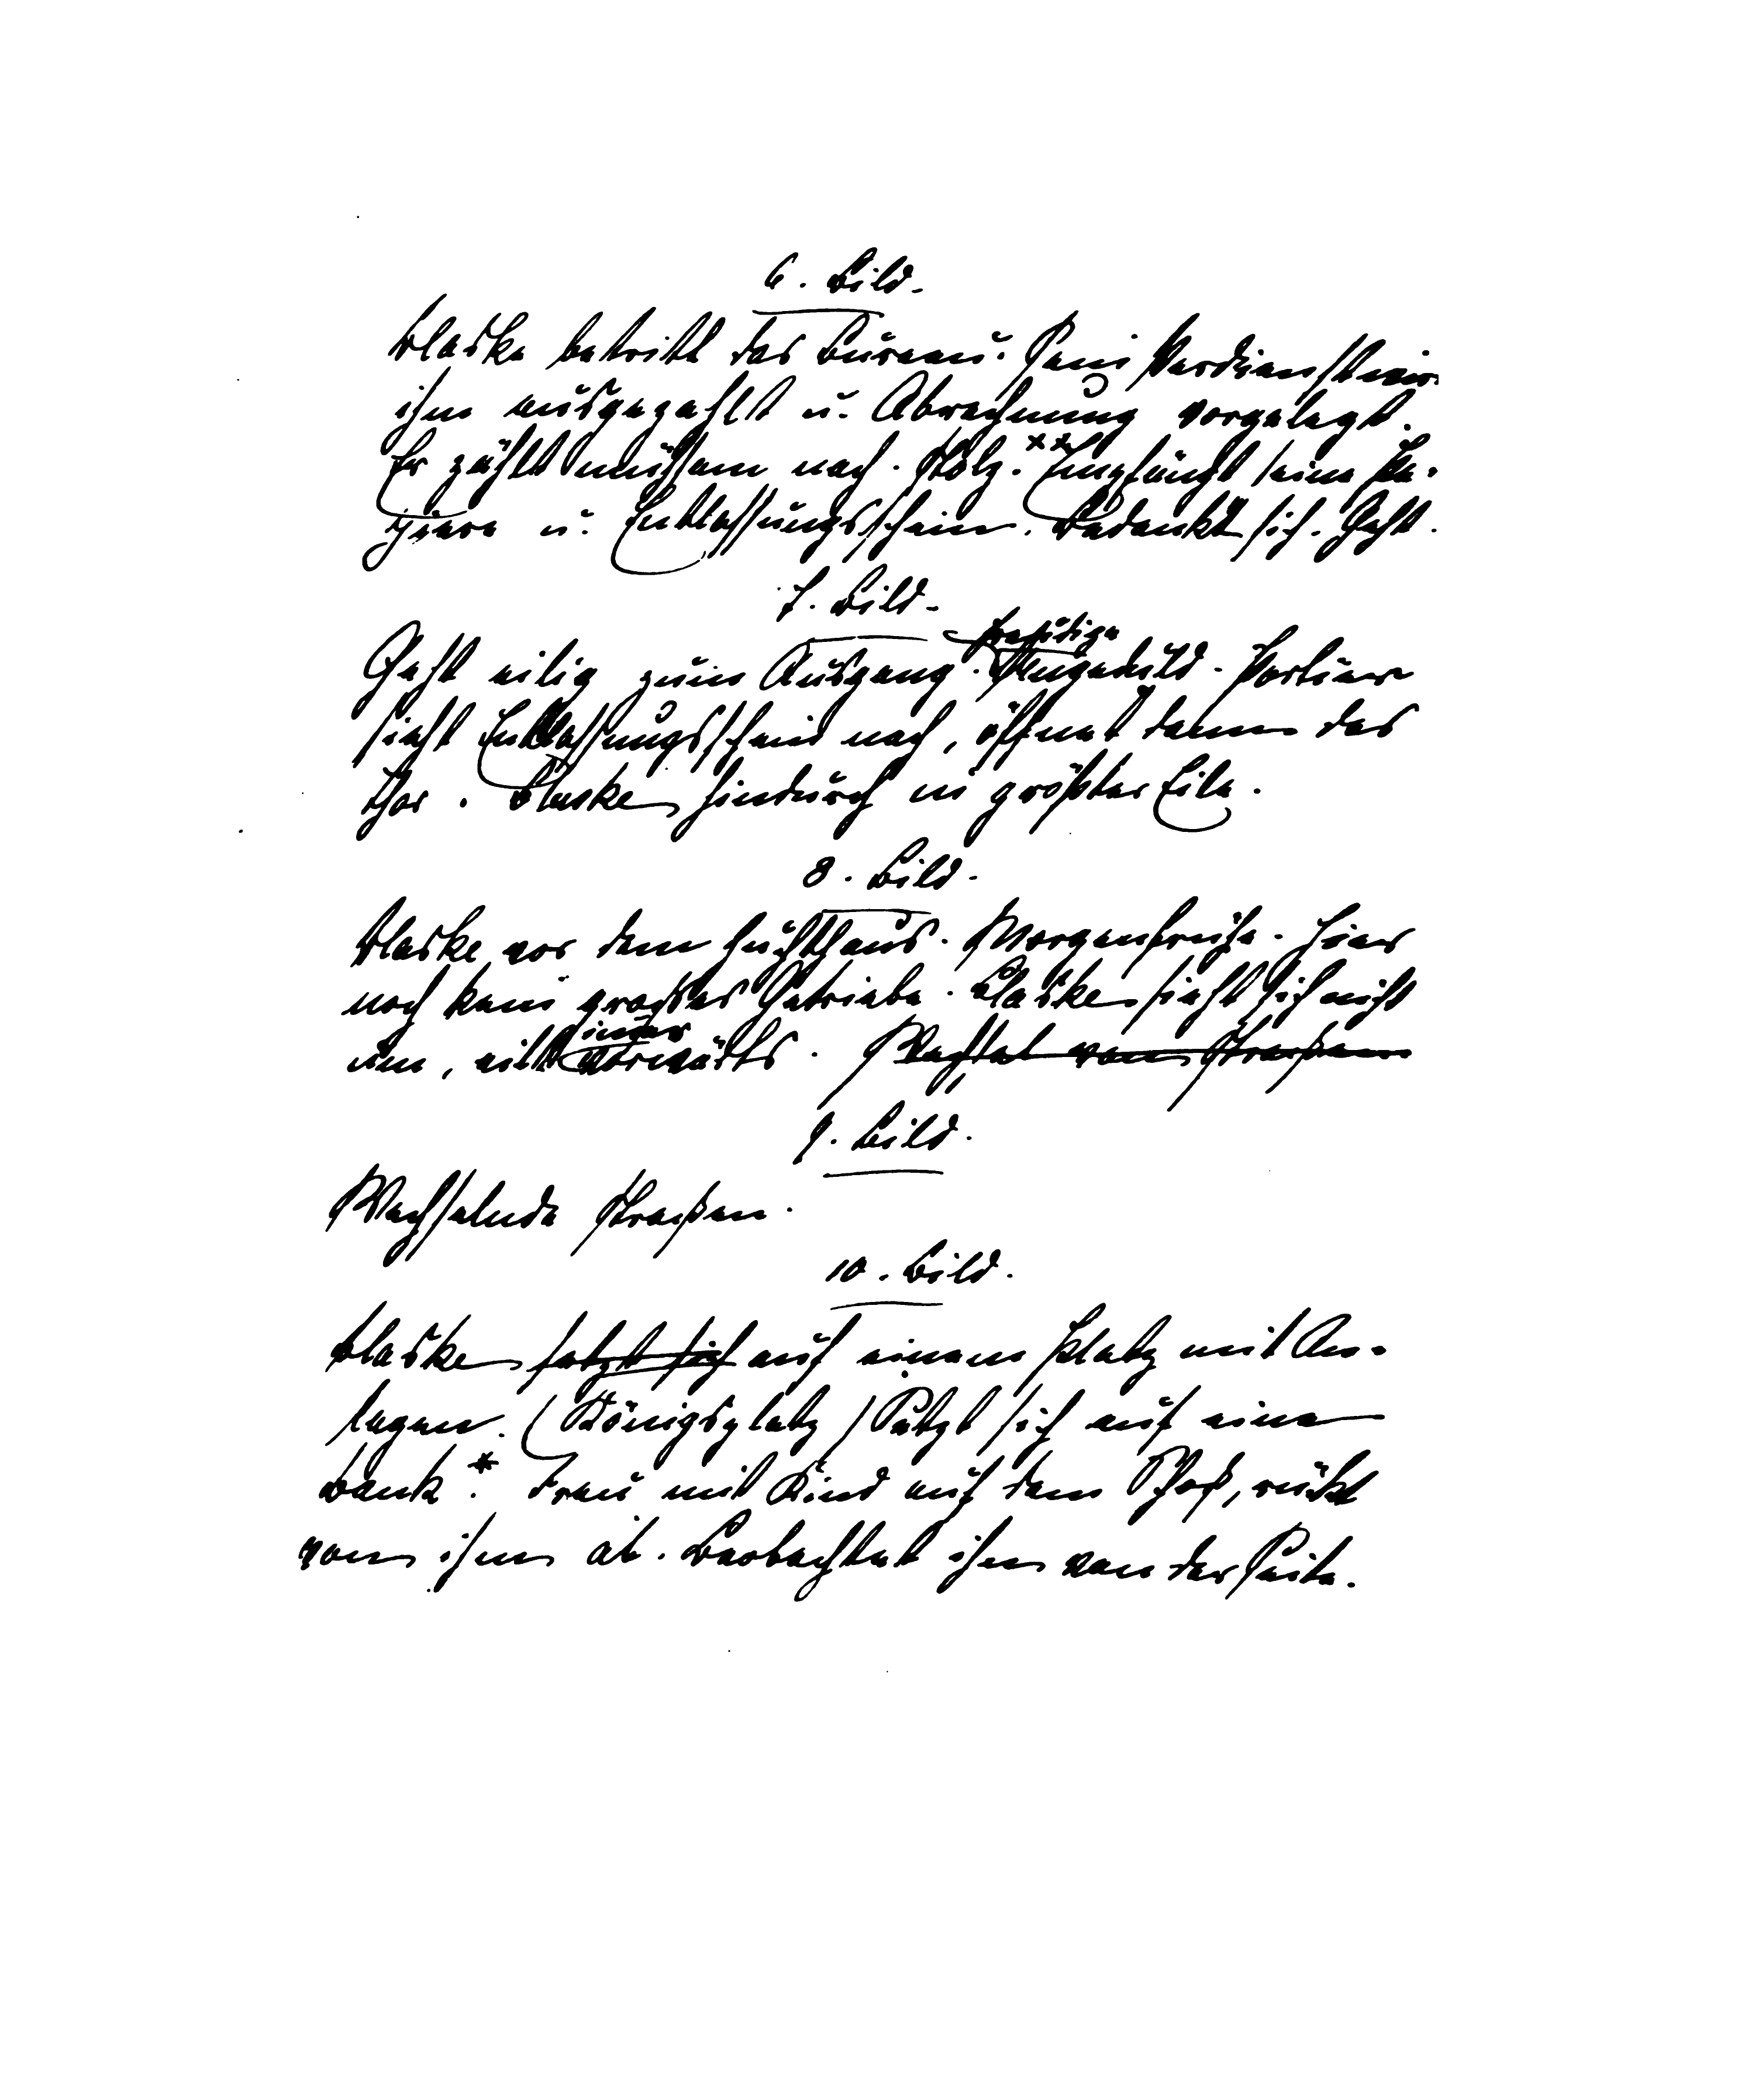 6. Bild.
Blaske betritt das Bureau. Sein Verdienst wird
ihm ausgezahlt u. Abrechnung vorgelegt.
Er zählt mühsam nach. Stolz.** Empfängt seine Pa-
piere u. Entlassungsschein. Bedankt sich. Geht.
7. Bild.
freudige
Geht eilig zum Ausgang. Ungeduld. Portier
sieht Entlassungsschein nach, öffnet dann das
Thor. Blaske hindurch in größter Eile.
8. Bild.
Blaske vor dem Zuchthaus. Morgenfrühe. Hier
noch kein grosses Getriebe. Blaske sieht sich nicht
immer
um, eilt vorwärts. Wechsel von Straßen
9. Bild.
Wechselnde Straßen.
10. Bild.
Blaske setzt sich auf einem Platz mit An-
lagen. (Königsplatz) Setzt sich auf eine
Bank.* Frau mit Kind auf dem Schoß, rückt
von ihm ab. Beobachtet ihn von der Seite.